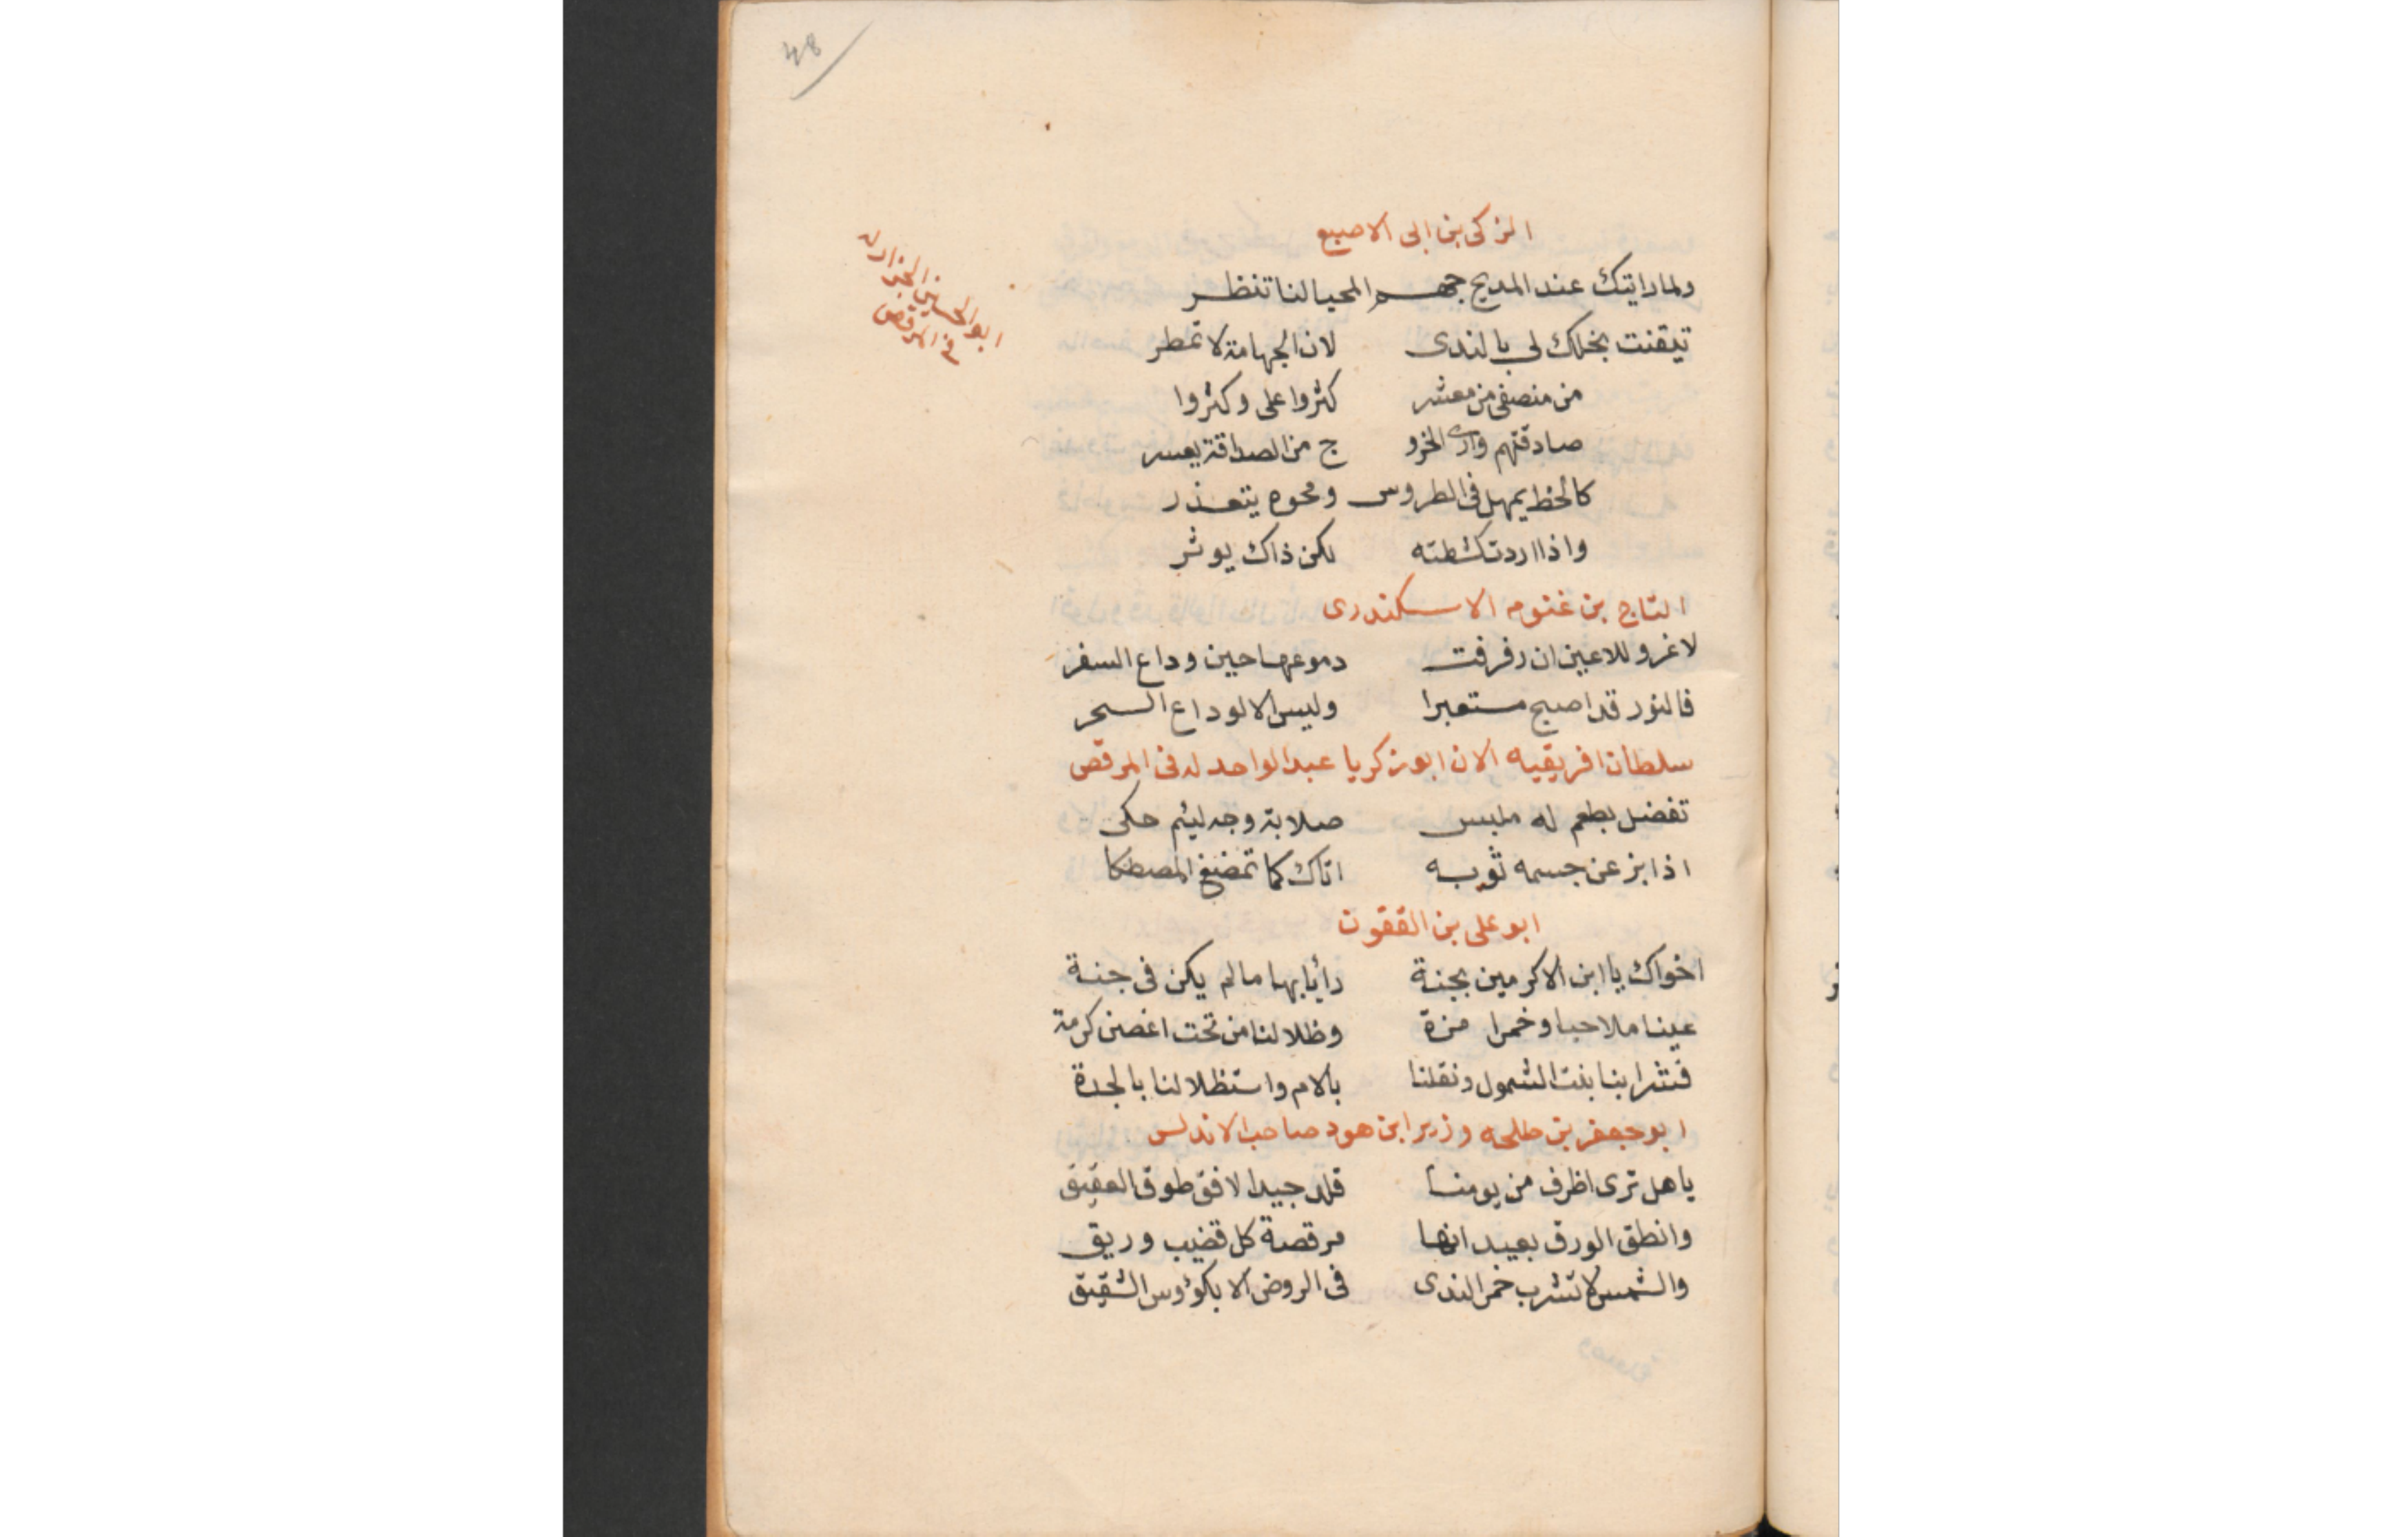 48
الزكى بن ابى الاصبع
ولما رايتك عند المديح جهم المحيا لنا تنظر
تيقنت بخلك لى بالندى لان الجهامة لا تمطر
ابو الحسين الجزار له
فى المرقص
من منصفى من معشر كثروا على وكثروا
صادقتهم وارى الخرو ج من الصداقة يعسر
كالخط يمهل فى الطروس ومحوه يتعذر
واذا اردت كشطته لكن ذاك يوثر
التاج بن غنوم الاسكندرى
لا غرو للاعين ان رفرفت دموعها حين وداع السفر
فالنور قد اصبح مستعبرا وليس الا لوداع السحر
سلطان افريقيه الان ابو زكريا عبد الواحد له فى المرقص
تفضل بطعم له ملبس صلابة وجه لئيم حكى
اذا بز عن جسمه ثوبه اتاك كما تمضغ المصطكا
ابو على بن القفون
اخواك يا ابن الاكرمين بجنة رأيا بها ما لم يكن فى جنة
عينا ملاحيا وخمرا مزة وظلا لنا من تحت اغصن كرمة
فشرابنا بنت الشمول ونقلنا بالام واستظلالنا بالجدة
ابو جعفر بن طلحه وزير ابن هود صاحب الاندلس
يا هل ترى اظرف من يومنا قلد جيد الافق طوق العقيق
وانطق الورق بعيدانها مرقصة كل قضيب وريق
والشمس لا تشرب خمر الندى فى الروض الا بكؤوس الشقيق